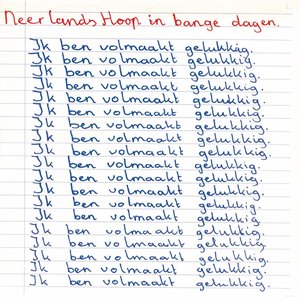 Neerlands Hoop in bange dagen.
Ik ben volmaakt gelukkig.
Ik ben volmaakt gelukkig.
Ik ben volmaakt gelukkig.
Ik ben volmaakt gelukkig.
Ik ben volmaakt gelukkig.
Ik ben volmaakt gelukkig.
Ik ben volmaakt gelukkig.
Ik ben volmaakt gelukkig.
Ik ben volmaakt gelukkig.
Ik ben volmaakt gelukkig.
Ik ben volmaakt gelukkig.
Ik ben volmaakt gelukkig.
Ik ben volmaakt gelukkig.
Ik ben volmaakt gelukkig
Ik ben volmaakt gelukkig.
Ik ben volmaakt gelukkig.
Ik ben volmaakt gelukkig.
Ik ben volmaakt gelukkig.
Ik ben volmaakt gelukkig.